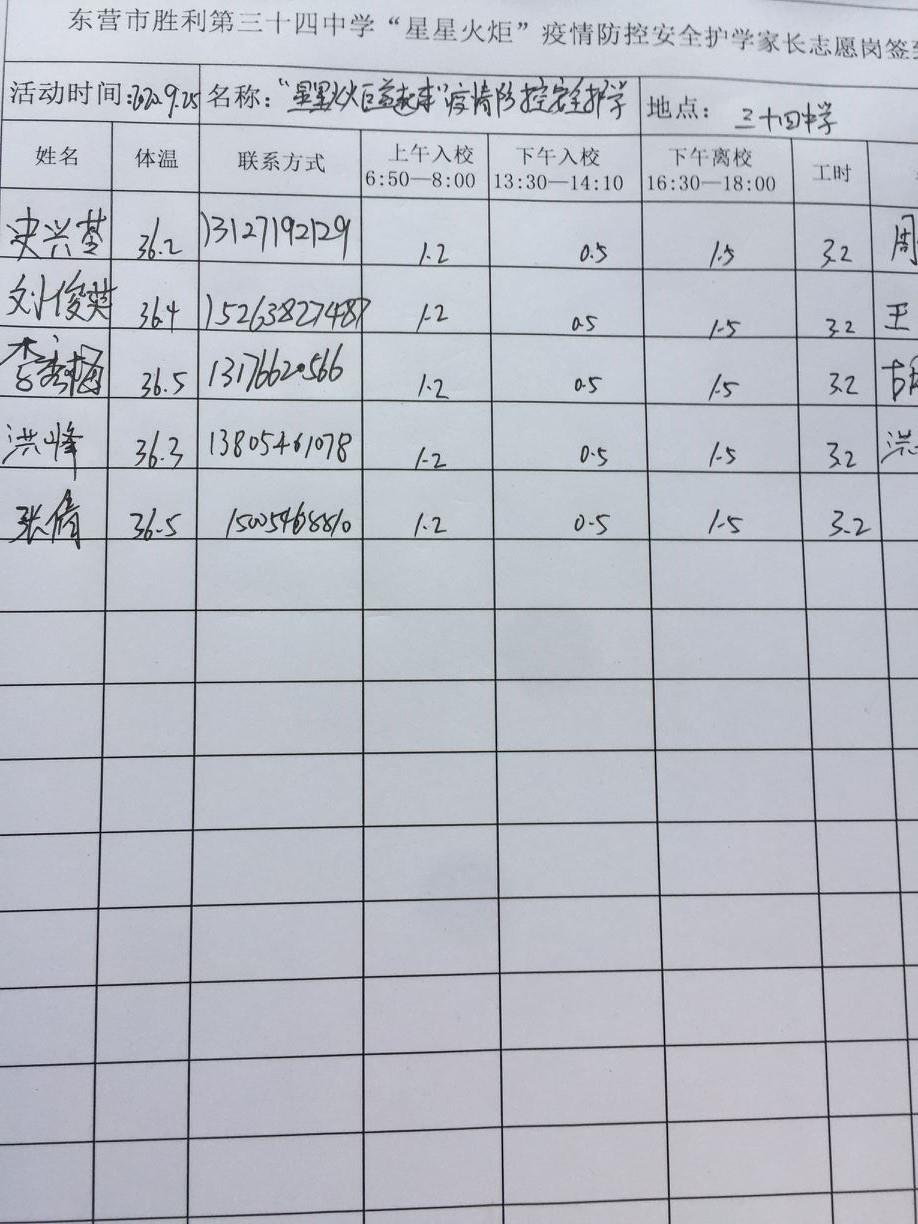 东营市胜利第三十四中学“星星火炬”疫情防控安全护学家长志愿岗签到
活动时间:2022.9.25 名称:“星星火炬益起来”疫情防控安全护学 地点: 三十四中学
姓名 体温 联系方式 上午入校 6:50—8:00 下午入校 13:30—14:10 下午离校 16:30—18:00 工时
史兴基 36.2 13127192129 1.2 0.5 1.5 3.2 周
刘俊英 36.4 15263827487 1.2 0.5 1.5 3.2 王
李秀梅 36.5 13176620566 1.2 0.5 1.5 3.2 胡
洪峰 36.3 13805461078 1.2 0.5 1.5 3.2 洪
张倩 36.5 15005468810 1.2 0.5 1.5 3.2